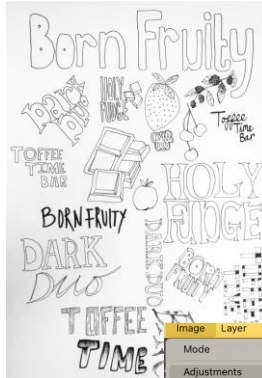 Born Fruity
Dark
Duo
HOLY
FUDGE
Toffee
Time
Bar
TOFFEE
TIME
BAR
HOLY
FUDGE
BORN FRUITY
DARK DUO
DARK
Duo
BORN
FRUITY
TOFFEE
TIME
Image Layer
Mode
Adjustments